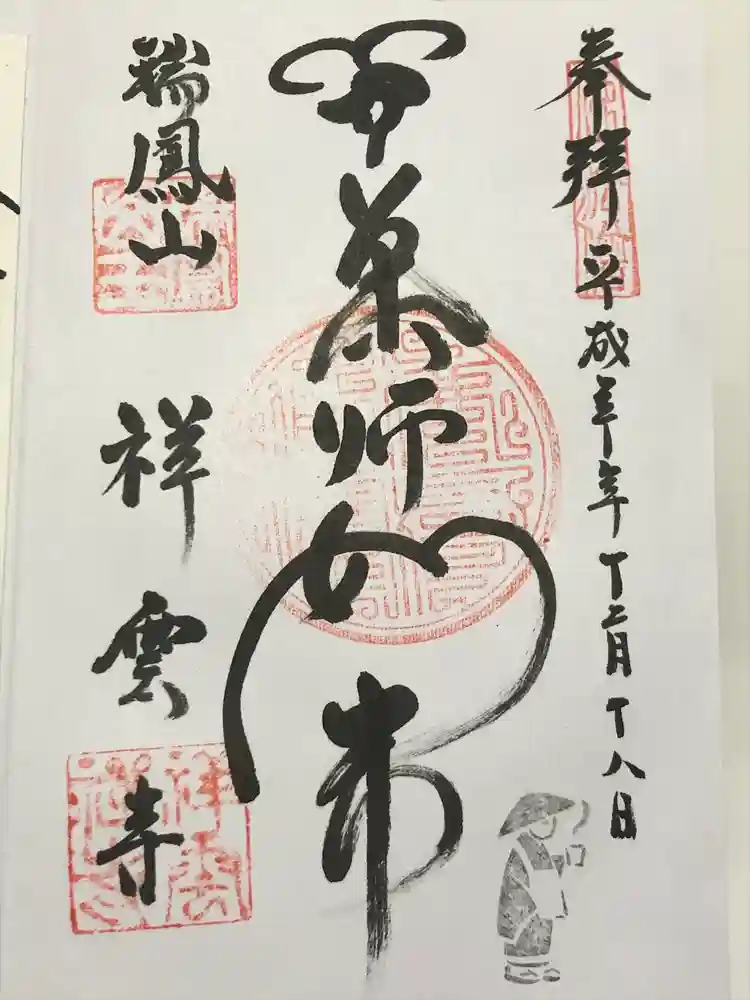 奉拝 平成年十二月十八日
薬師如来
瑞鳳山
祥雲寺